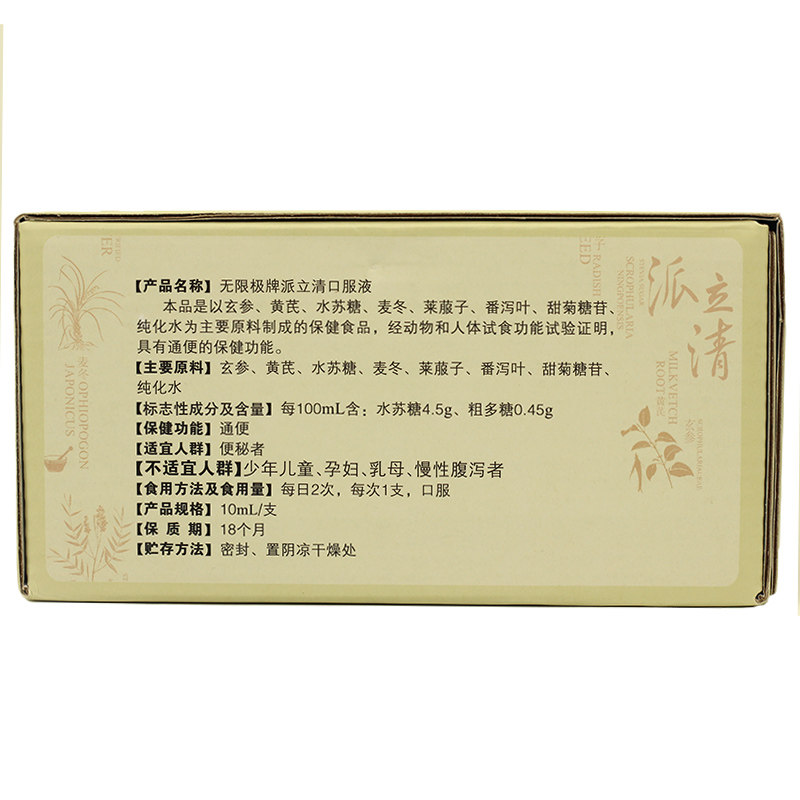 【产品名称】无限极牌派立清口服液
本品是以玄参、黄芪、水苏糖、麦冬、莱菔子、番泻叶、甜菊糖苷、
纯化水为主要原料制成的保健食品，经动物和人体试食功能试验证明，
具有通便的保健功能。
【主要原料】玄参、黄芪、水苏糖、麦冬、莱菔子、番泻叶、甜菊糖苷、
纯化水
【标志性成分及含量】每100mL含：水苏糖4.5g、粗多糖0.45g
【保健功能】通便
【适宜人群】便秘者
【不适宜人群】少年儿童、孕妇、乳母、慢性腹泻者
【食用方法及食用量】每日2次，每次1支，口服
【产品规格】10mL/支
【保 质 期】18个月
【贮存方法】密封、置阴凉干燥处
派立清
麦冬OPHIOPOGON
JAPONICUS
子 RADISH
EED
SCROPHULARIA
NINGPOENSIS
MILKVETCH
ROOT 黄芪
玄参
ER